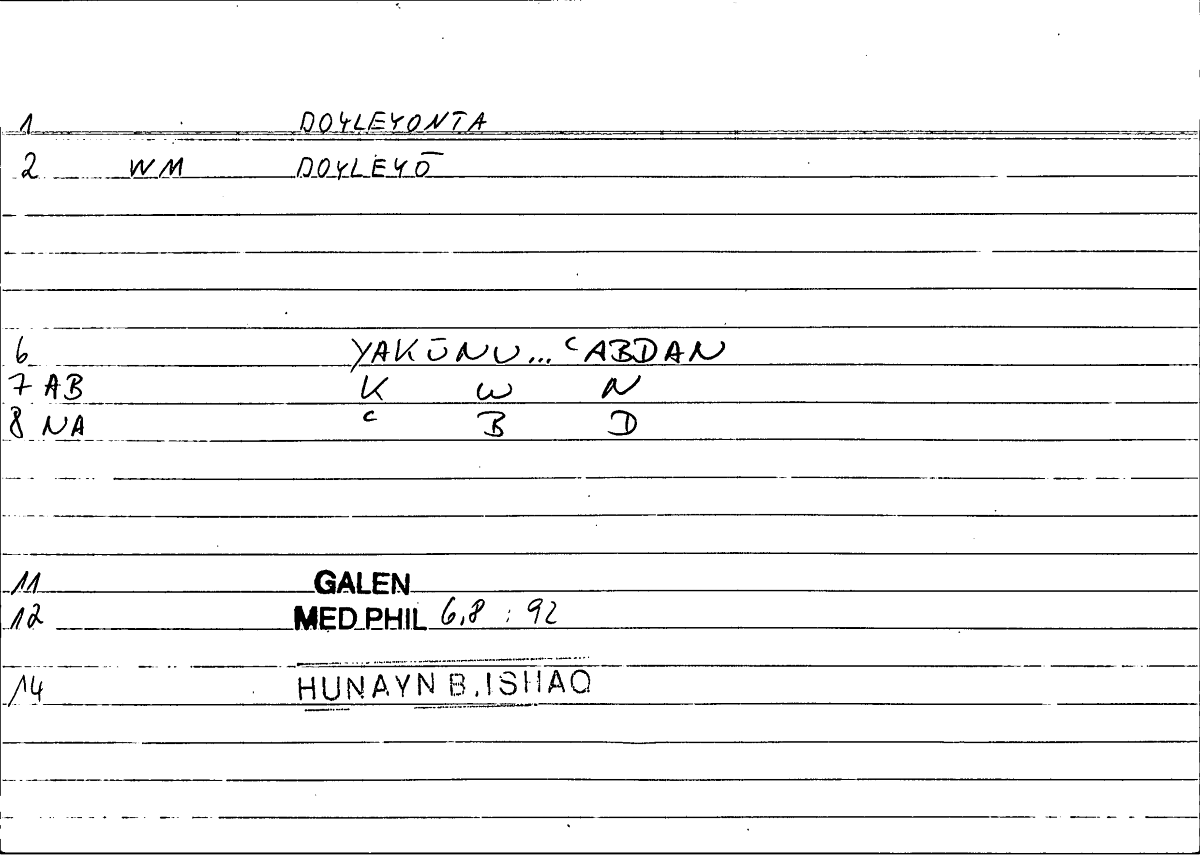 1 DOYLEYONTA
2 WM DOYLEYŌ
6 YAKŪNU... ʿABDAN
7 AB K W N
8 NA ʿ B D
11 GALEN
12 MED PHIL 6,8 : 92
14 HUNAYN B. ISHAQ